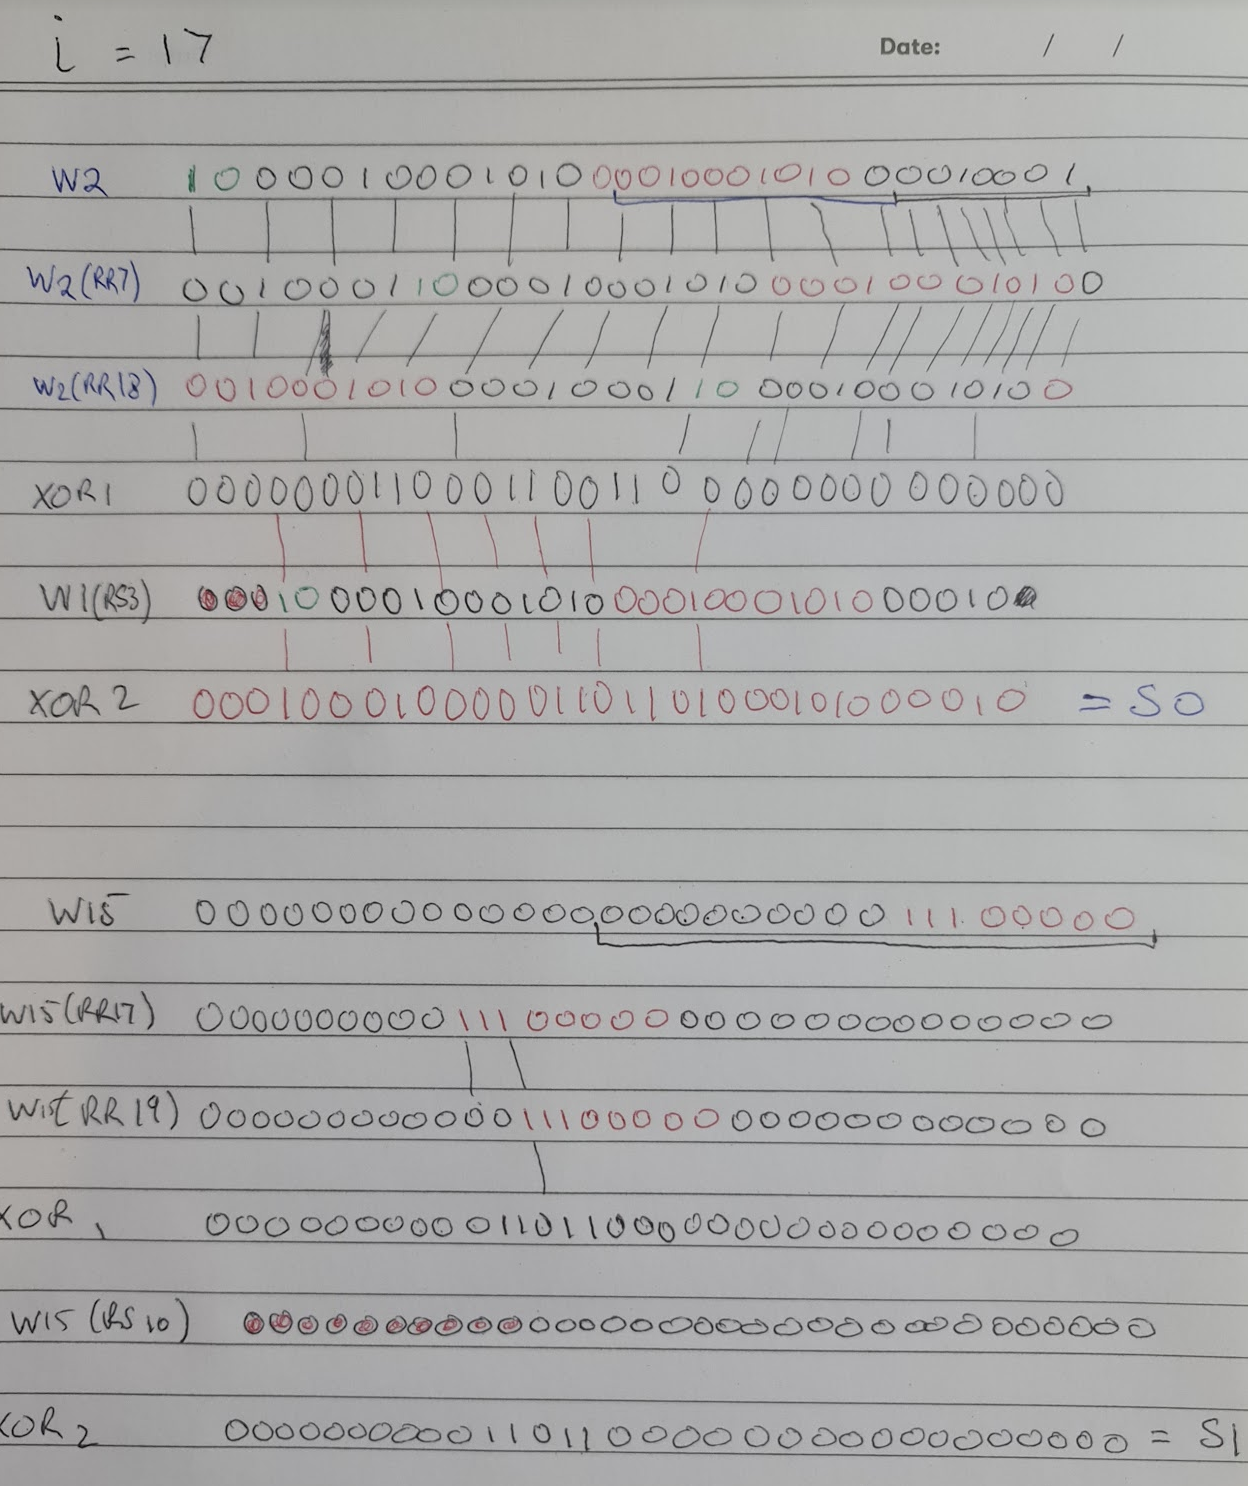 i = 17
Date: / /
W2 10000100010100001000101000010001
W2(RR7) 00100011000010001010000100010100
W2(RR18) 00100010100001000110000100010100
XOR1 00000001100011001100000000000000
W1(RS3) 00010000100010100001000101000010
XOR 2 00010001000001101101000101000010 = S0
W15 00000000000000000000000011100000
W15(RR17) 00000000011100000000000000000000
W15(RR19) 00000000000111000000000000000000
XOR1 00000000011011000000000000000000
W15 (RS10) 00000000000000000000000000000000
XOR2 00000000011011000000000000000000 = S1